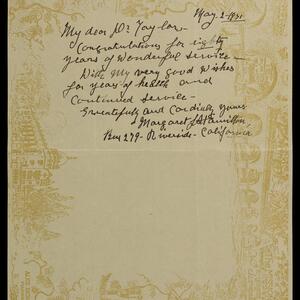 May 2-1931
My dear Dr Taylor-
Congratulations for eighty
years of wonderful service -
With my very good wishes
for years of health and
Continued service -
Gratefully and Cordially yours
Margaret S Hamilton
Box 279 - Riverside - California